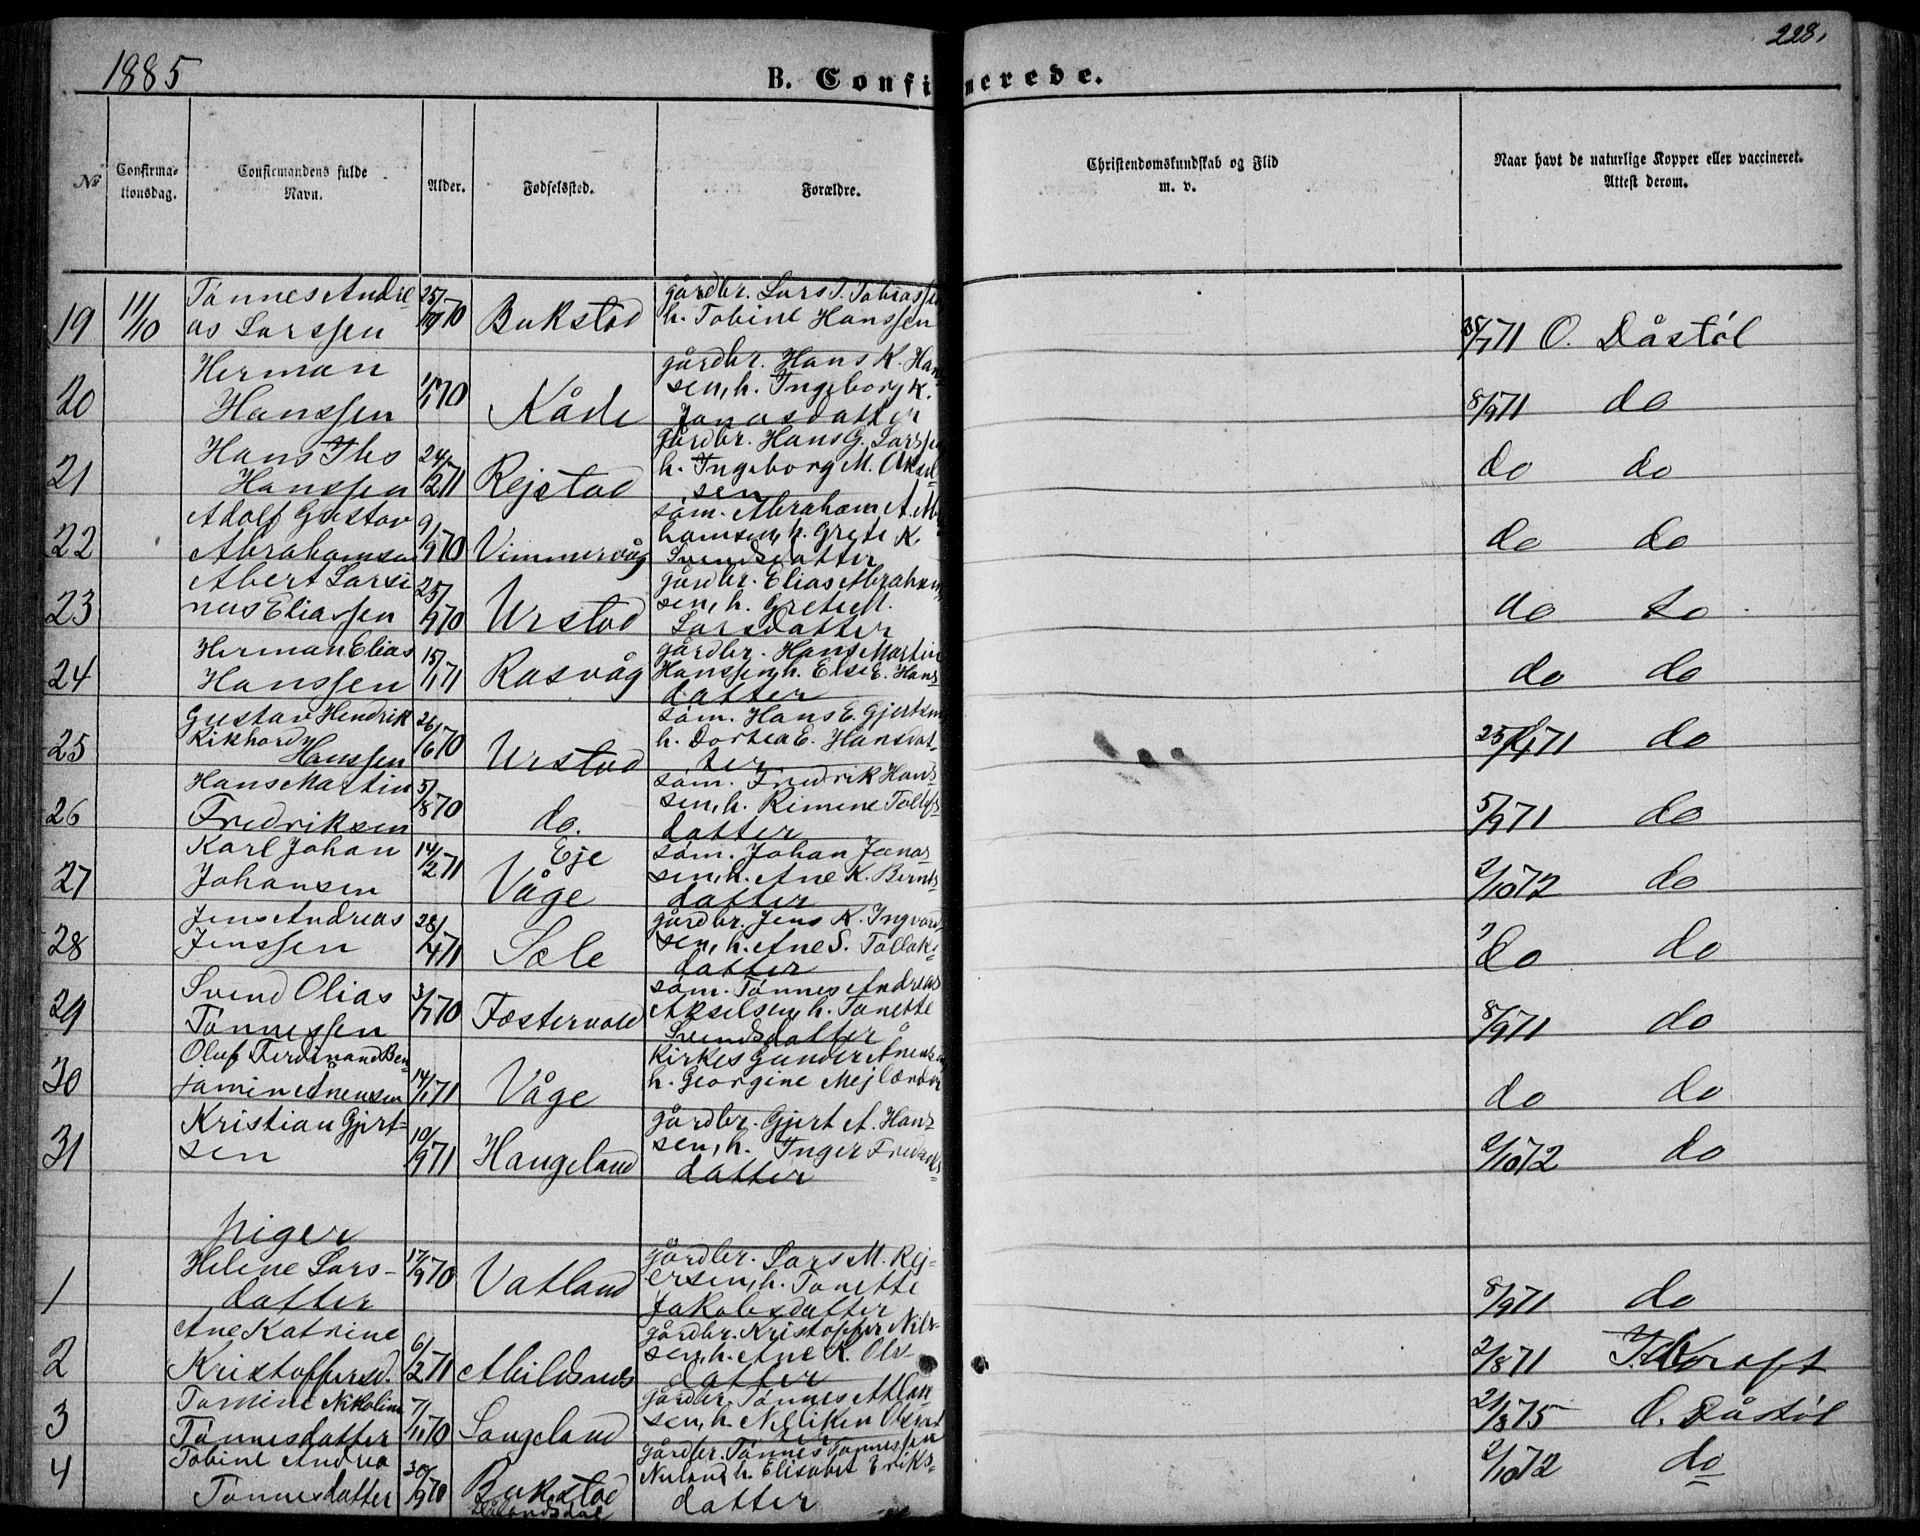 1885
228.
B. Confirmerede.
№
Confirma-
tionsdag.
Confirmandens fulde
Navn.
Alder.
Fødselssted.
Forældre.
Christendomskundskab og Flid
m. v.
Naar havt de naturlige Kopper eller vaccineret.
Attest derom.
19 11/10 Tønnes Andre
as Larssen
70 Bukstad
gårdbr. Lars T. Tobiassen
h. Tobine Hanssen
71 O. Dåstøl
20 Herman
Hanssen
70 Kåde
gårdbr. Hans K. Han
sen, h. Ingeborg K.
Jonasdatter
8/9 71 do
21 Hans Ths
Hanssen
24/12 71 Rejstad
gårdbr. Hans G. Larssen
h. Ingeborg M. Aksel
sen
do do
22 Adolf Gustav
Abrahamsen
9/9 70 Vimmervåg
søm. Abraham A. Abr
hamsen, h. Grete K.
Svendsdatter
do do
23 Abert Larsi
nus Eliassen
25/9 70 Urstad
gårdbr. Elias Abraham
sen, h. Grete M.
Larsdatter
do do
24 Herman Elias
Hanssen
15/1 71 Rasvåg
gårdbr. Hans Martin
Hanssen, h. Else E. Hans
datter
do do
25 Gustav Hendrik
Rikhard
Hanssen
26/6 70 Urstad
søm. Hans E. Gjertsen
h. Dortea E. Hansdat
ter
71 do
26 Hans Martin
Fredriksen
5/8 70 do.
søm. Fredrik Hans
sen, h. Rimene Tollefs
datter
5/9 71 do
27 Karl Johan
Johansen
14/2 71 Eje
Våge
søm. Johan Jonas
sen, h. Ane K. Bernts
datter
2/10 72 do
28 Jens Andreas
Jenssen
28/4 71 Sæle
gårdbr. Jens K. Ingvald
sen, h. Ane S. Tollaks
datter
do do
29 Svend Olias
Tønnessen
3/7 70 Fostervold
søm. Tønnes Andreas
Akselsen, h. Tonette
Svendsdatter
8/9 71 do
30 Oluf Ferdinand Ben
jamin Ånensen
14/1 71 Våge
Kirkes Gunder Ånensen
h. Georgine Mejlænder
do do
31 Kristian Gjert-
sen
19/9 71 Haugeland
gårdbr. Gjert A. Han
sen, h. Inger Fredriks
datter
2/10 72 do
piger
1 Helene Lars-
datter
17/9 70 Vatland
gårdbr. Lars M. Rej
ersen, h. Tonette
Jakobsdatter
8/9 71 do
2 Ane Katrine
Kristoffersd.
6/2 71 Abildsnes
gårdbr. Kristoffer Nils
sen, h. Ane K. Ols
datter
2/8 71 Kraft
3 Tomine Nikoline
Tønnesdatter
7/11 70 Langeland
gårdbr. Tønnes Atlak
sen, h. Nilliken Olsdat
ter
21/8 75 O. Dåstøl
4 Tobine Andrea
Tønnesdatter
30/9 70 Bukstad
gårdbr. Tønnes Tønnessen
h. Elisabet Eriks
datter
2/10 72 do